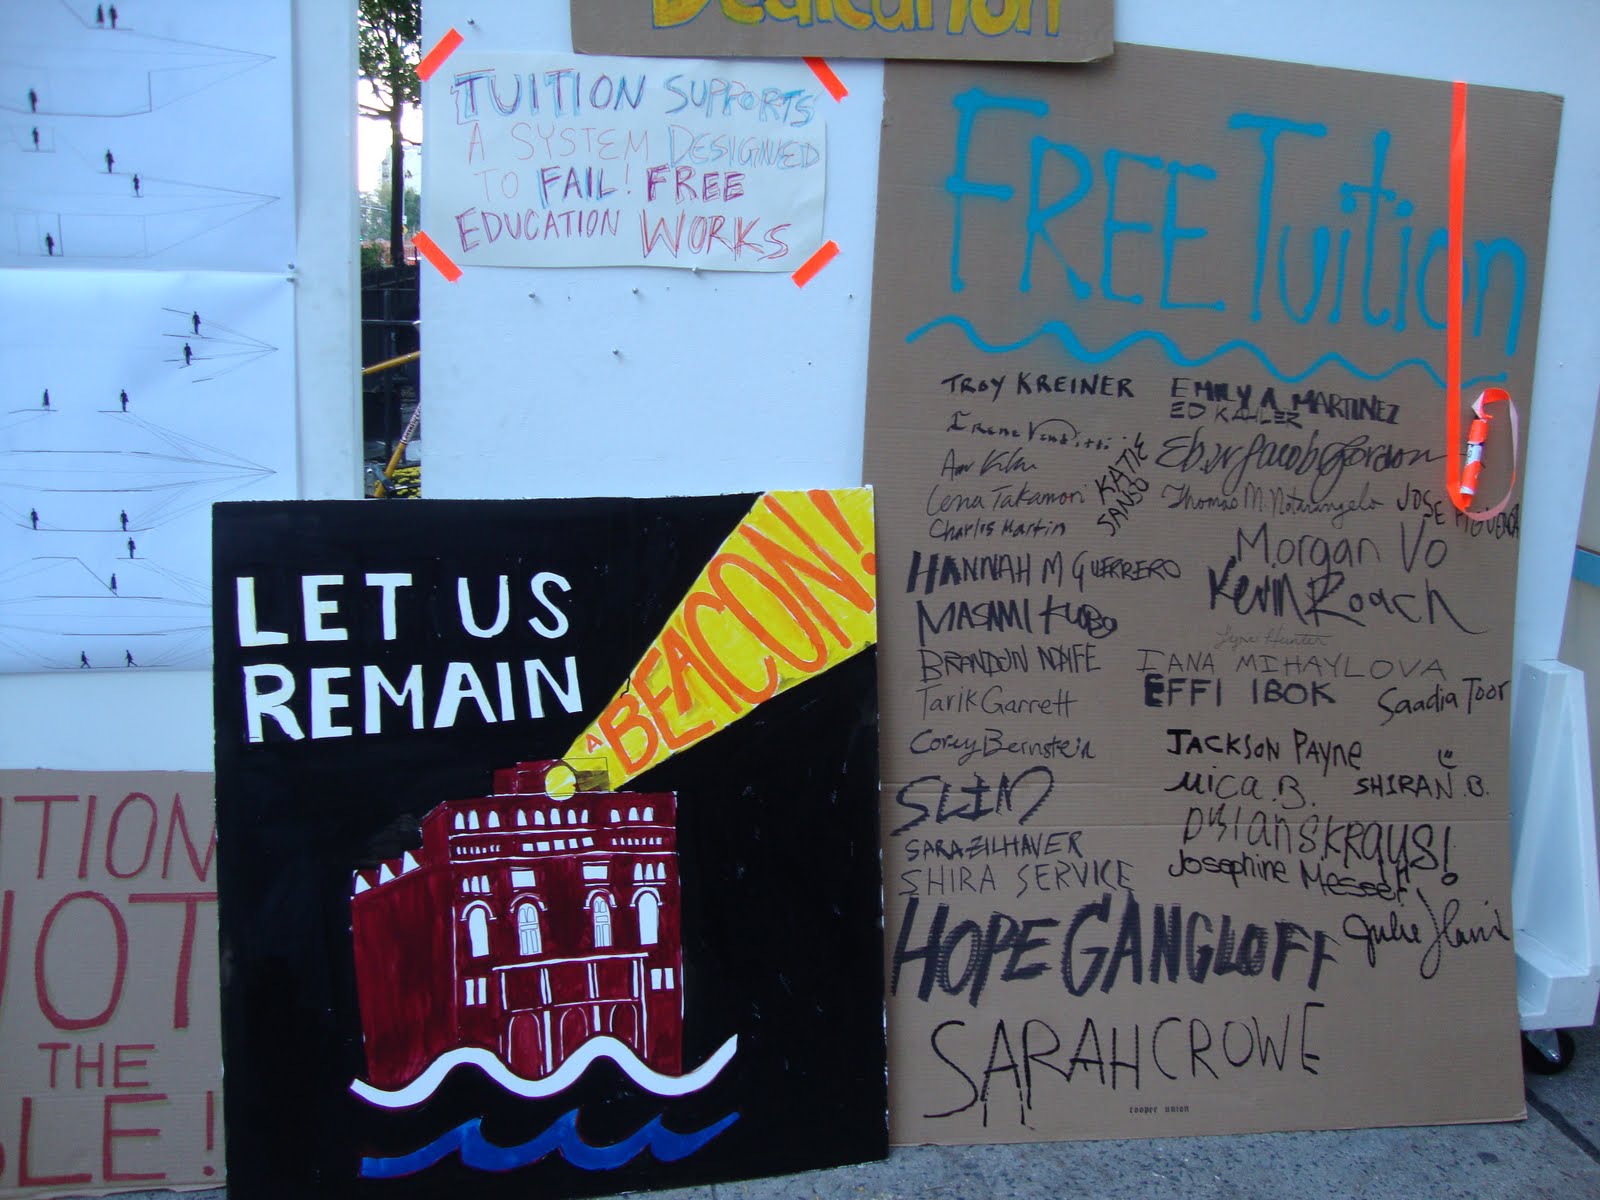 Dedication
TUITION SUPPORTS
A SYSTEM DESIGNED
TO FAIL! FREE
EDUCATION WORKS
FREE Tuition
TROY KREINER
EMILY A MARTINEZ
ED KAHLER
Irene
KATIE SANSO
Jacob Gordon
Lena Takamori
Thomas M. Notarangelo
JOSE FIGUEROA
Charlis Martin
Morgan Vo
HANNAH M GUERRERO
Kevin Roach
MASAMI KUBO
Lynn Hunter
BRANDON
IANA MIHAYLOVA
Tarik Garrett
EFFI IBOK
Saadia Toor
Corey Bernstein
JACKSON PAYNE
SLIM
MICA .B.
SHIRAN .B.
SARA ZILHAVER
DYLAN SKRAUS!
SHIRA SERVICE
Josephine Messer
HOPE GANGLOFF
Julie
SARAH CROWE
cooper union
LET US
REMAIN
A BEACON!
TION
NOT
THE
LE!